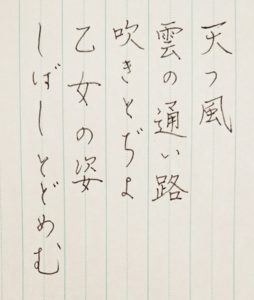 天つ風
雲の通い路
吹きとぢよ
乙女の姿
しばしとどめむ